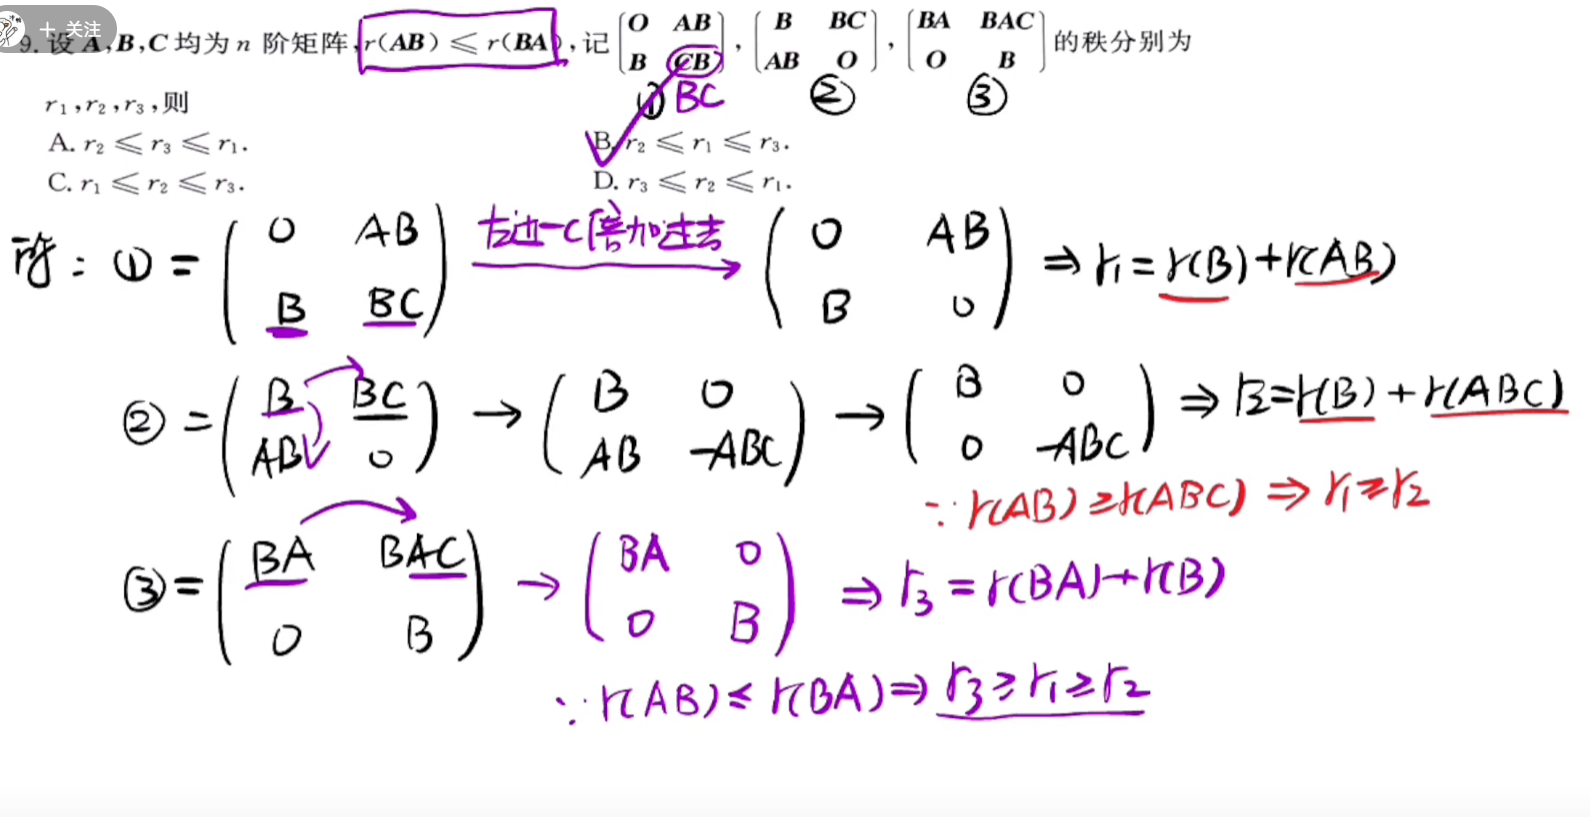 + 关注
9. 设 A,B,C 均为 n 阶矩阵, r(AB) ≤ r(BA), 记 [O AB; B CB], [B BC; AB O], [BA BAC; O B] 的秩分别为
① BC ② ③
r₁,r₂,r₃,则
A. r₂ ≤ r₃ ≤ r₁. B. r₂ ≤ r₁ ≤ r₃.
C. r₁ ≤ r₂ ≤ r₃. D. r₃ ≤ r₂ ≤ r₁.
: ① = (0 AB; B BC) 左边-C倍加过去 → (0 AB; B 0) ⇒ r₁=r(B)+r(AB)
② = (B BC; AB 0) → (B 0; AB -ABC) → (B 0; 0 -ABC) ⇒ r₂=r(B)+r(ABC)
∵ r(AB) ≥ r(ABC) ⇒ r₁≥r₂
③ = (BA BAC; 0 B) → (BA 0; 0 B) ⇒ r₃ = r(BA)+r(B)
∵ r(AB) ≤ r(BA) ⇒ r₃ ≥ r₁ ≥ r₂